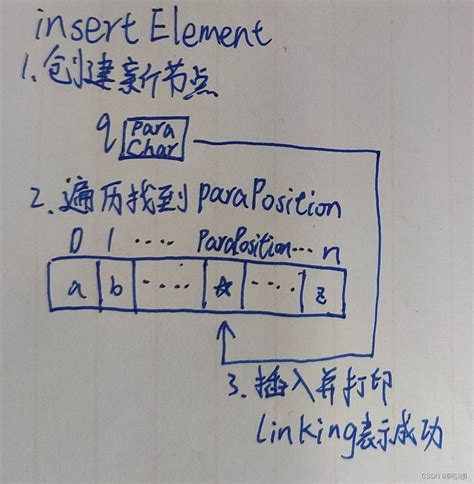 insert Element
1.创建新节点
q para
Char
2.遍历找到paraPosition
0 1 .... ParaPosition... n
a b .... ☆ .... z
3.插入并打印
linking表示成功